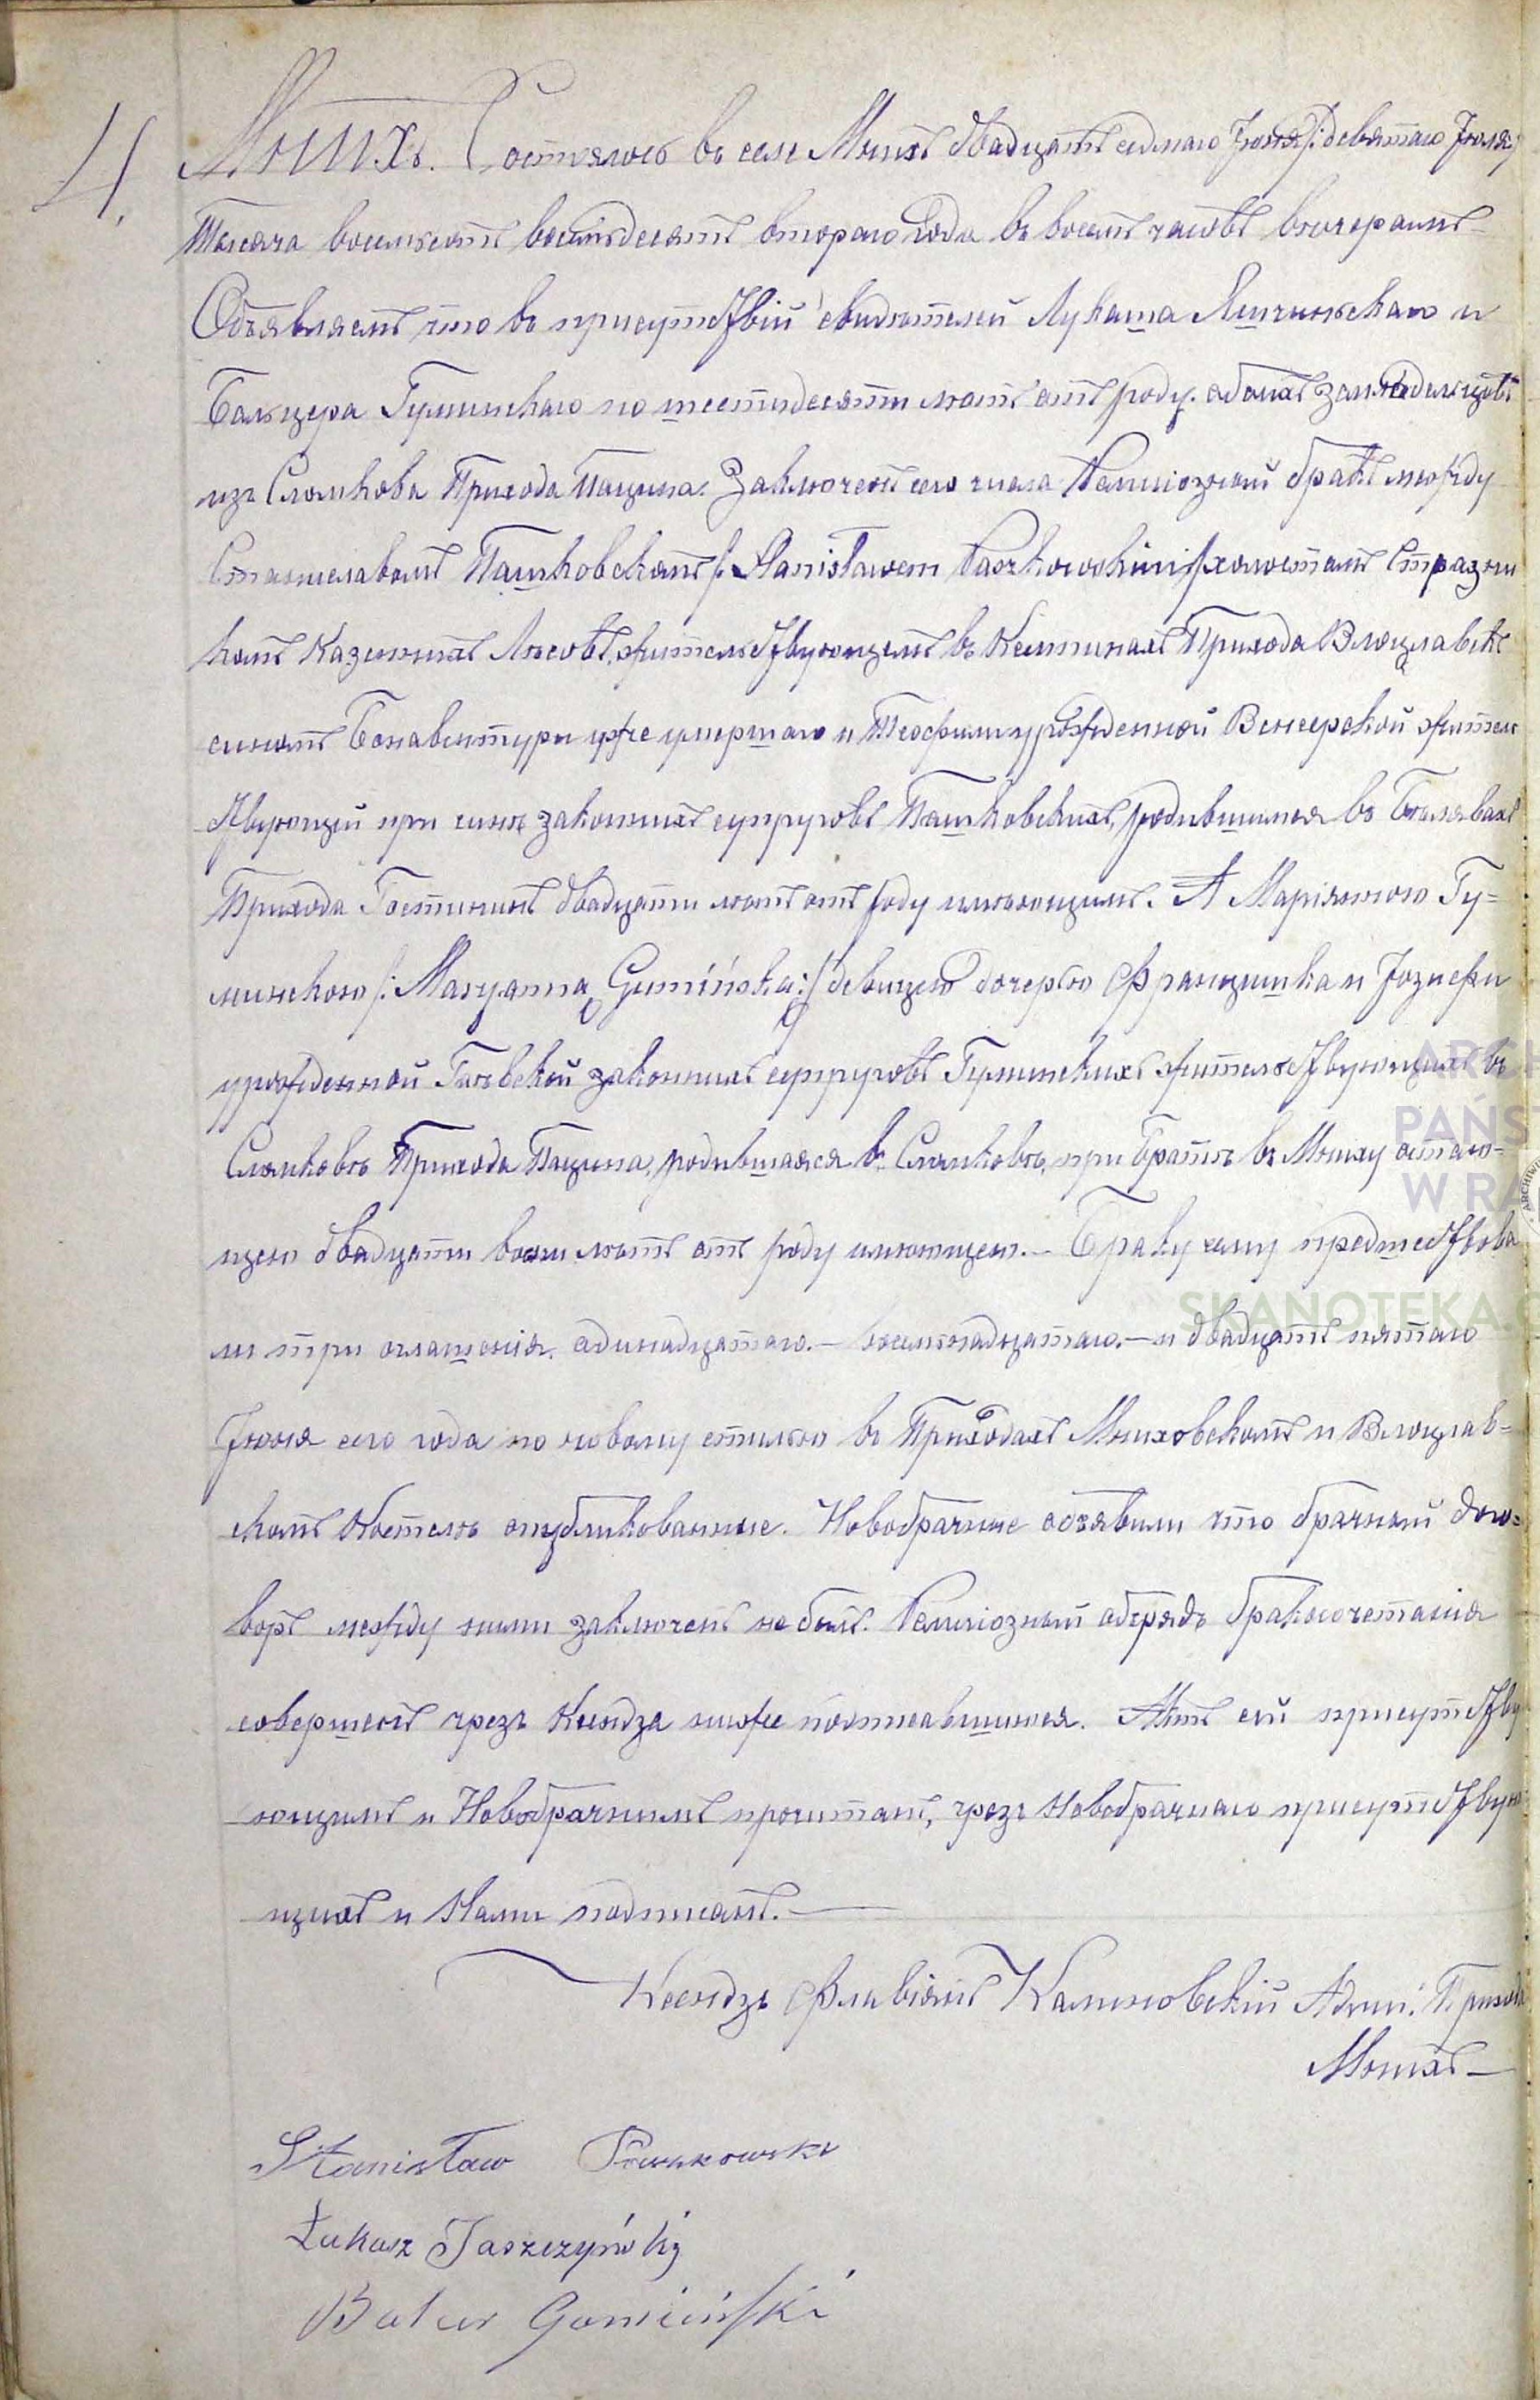 4. Мнихъ. Состоялось въ селе Мнихъ двадцать седмаго Іюня /: девятаго Іюля:/
Тысяча восемьсотъ восемьдесятъ втораго Года въ восемь часовъ вечеромъ
Объявляемъ что въ присутствій свидѣтелей Лукаша Ящинскаго и
Бальцера Гуминскаго по шестидесяти лѣтъ отъ роду. обоихъ земледельцовъ
изъ Сломкова Прихода Пацина. Заключенъ сего числа Религіозный бракъ между
Станиславомъ Пашковскимъ /: Stanisławem Paszkowskim :/ холостымъ Стражни
комъ Казенныхъ Лѣсовъ, жительствующемъ въ Прихода Влоцлавекъ
сыномъ Бонавентуры уже умершаго и Теофили урожденной Венгерской житель
ствующій при сынѣ законныхъ супруговъ Пашковскихъ, родившимся въ Бѣлявахъ
Прихода Гостининъ двадцати лѣтъ отъ роду имѣющимъ. А Маріянною Гу=
минскою /: Maryanną Gumińską :/ девицею дочерью Францишка и Іознефи
урожденной законныхъ супруговъ Гуминскихъ жительствующихъ въ
Сломковѣ Прихода Пацина, родившаяся въ Сломковѣ, при братѣ въ Мниху остаю=
щею двадцати восми лѣтъ отъ роду имеющею. — Браку сему предшествова
ли три оглашенія. одинадцатаго. — восемнадцатаго. — и двадцать пятаго
Іюня сего года по новому стилю въ Приходахъ Мниховскомъ и Влоцлав=
скомъ Костелѣ опубликованные. Новобрачные объявили что брачный дого=
воръ между ними заключенъ не былъ. Религіозный обрядъ бракосочетанія
совершенъ чрезъ Ксендза ниже подписавшимся. Актъ сей присутству
ющимъ и Новобрачнымъ прочитанъ, чрезъ Новобрачнаго присутствую
щихъ и Нами подписанъ. —
Ксендзъ Флавіянъ Калиновскій Адми: Прихода
Мнихъ —
Stanisław Paszkowski
Łukasz Jaszczyński
Balcer Gomiński
ARCH
PAŃS
W RA
SKANOTEKA.